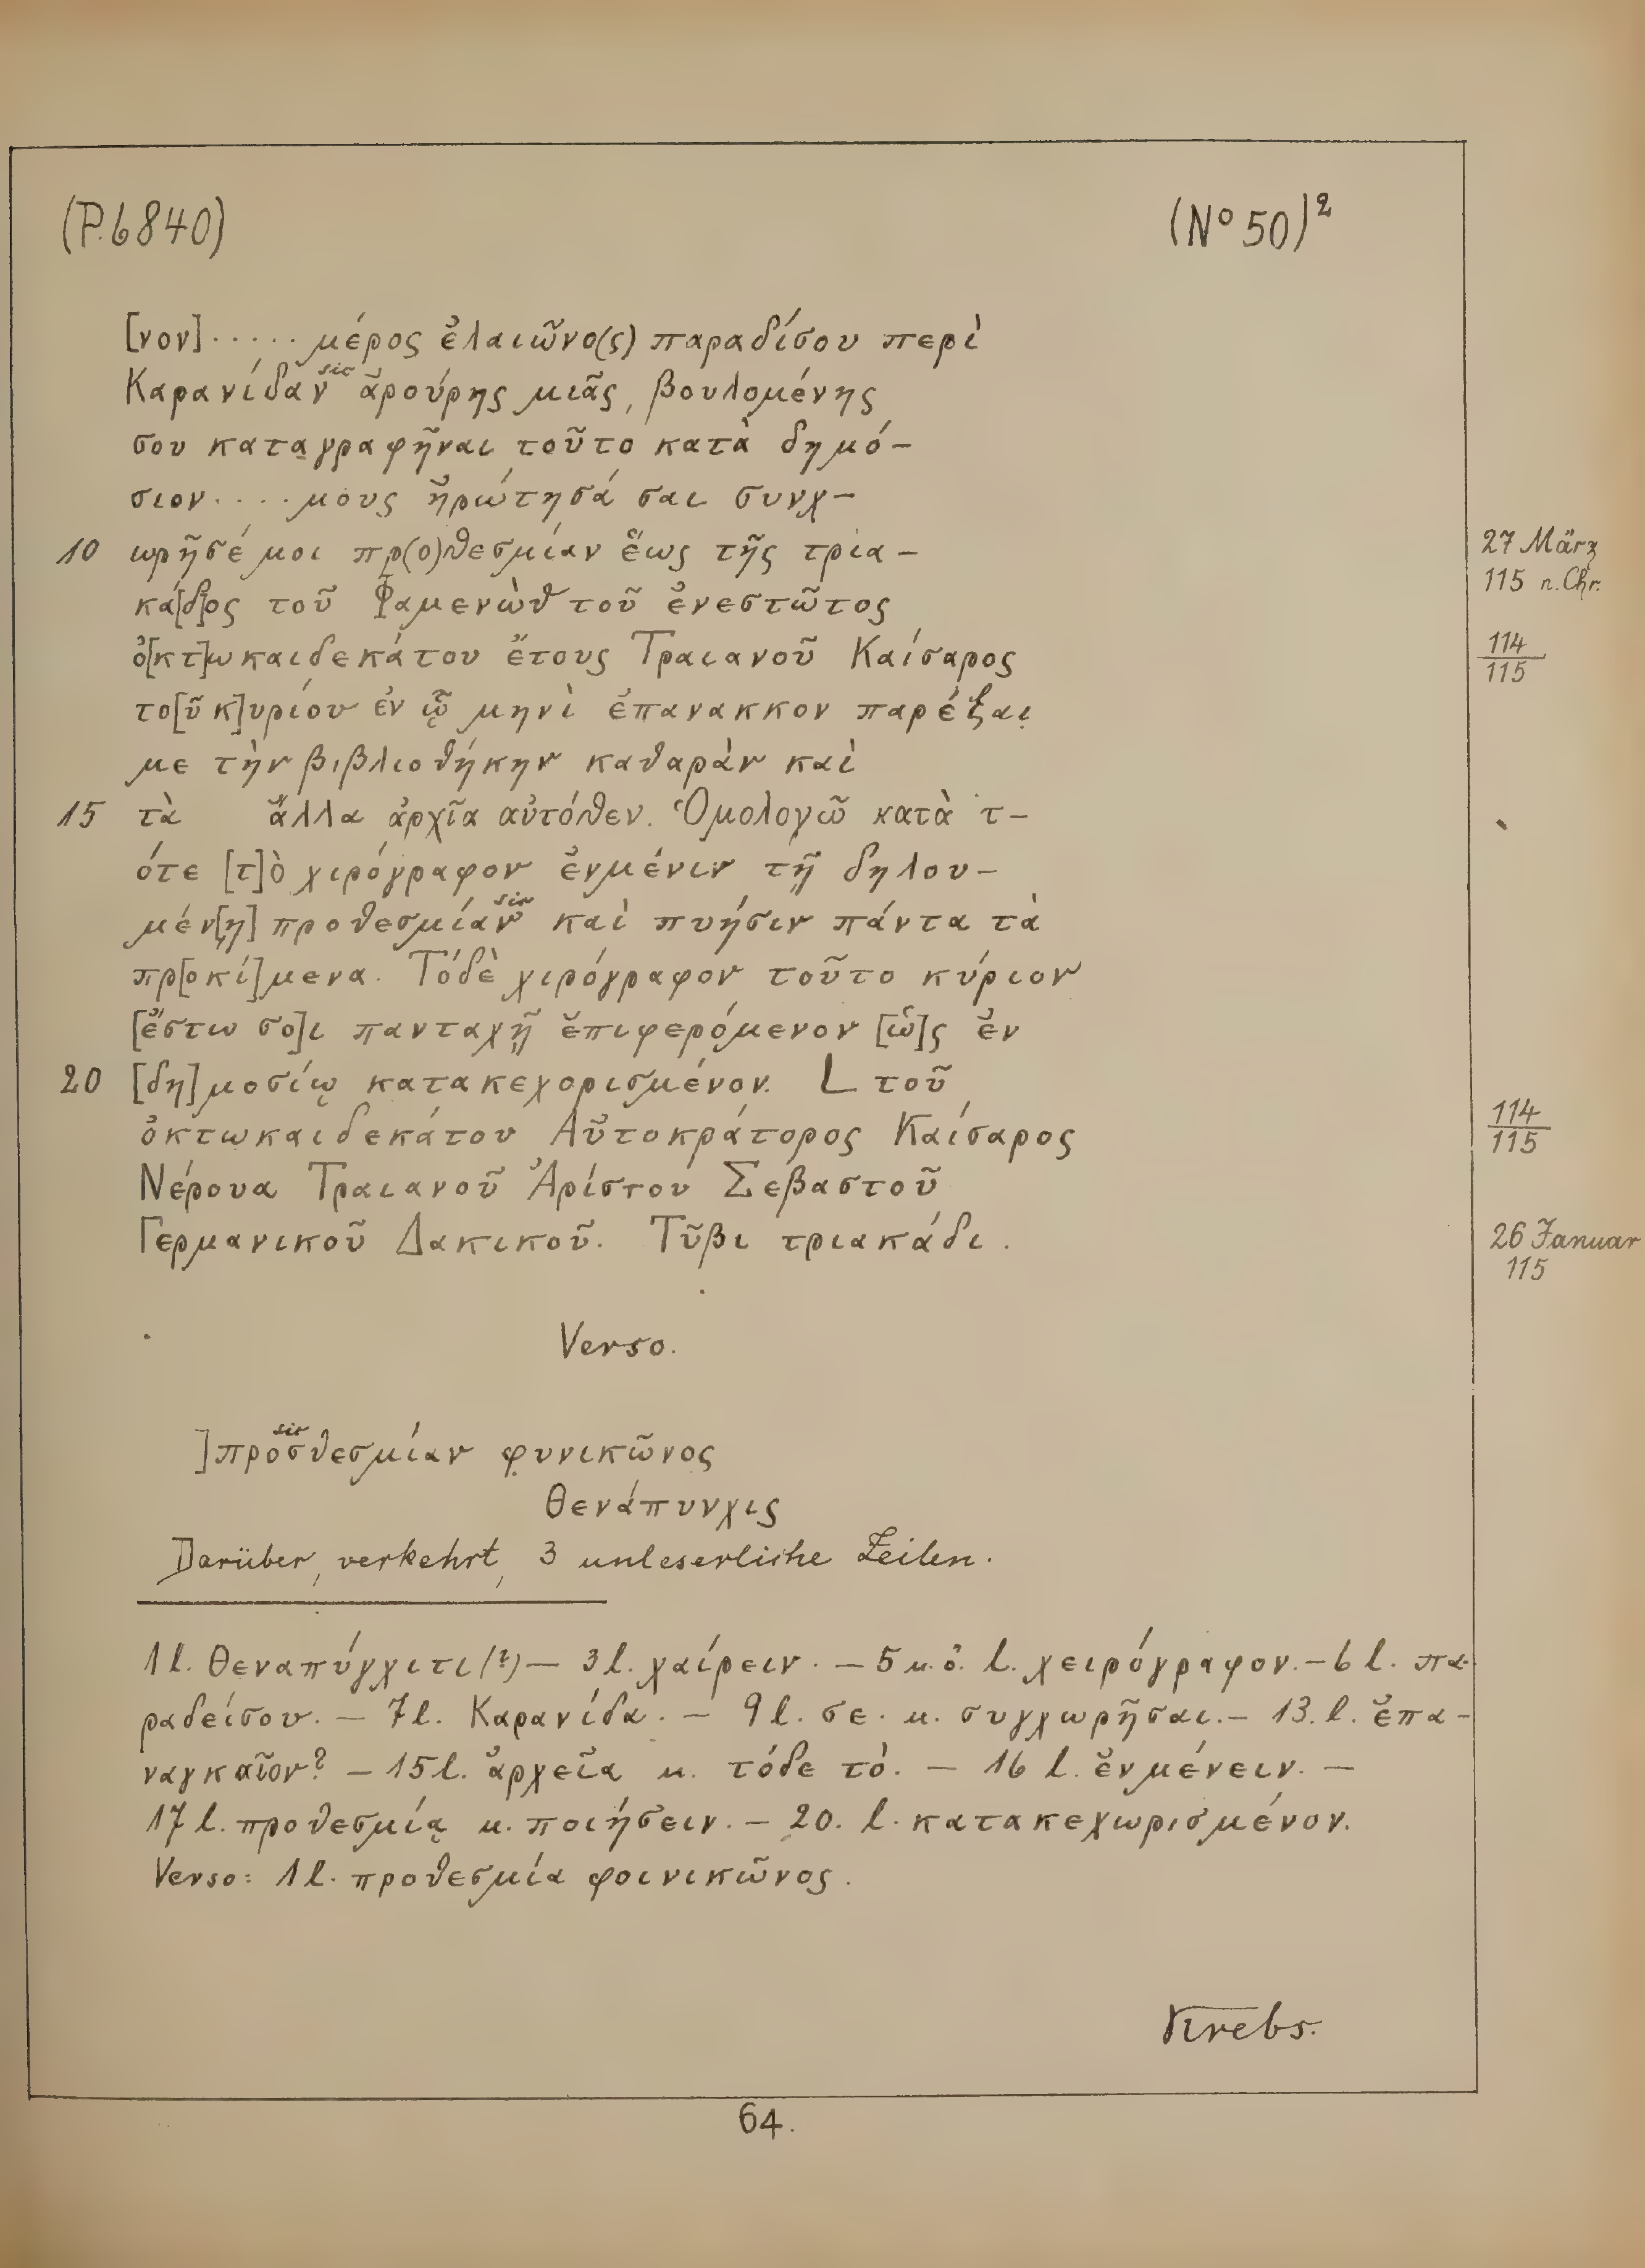 (P. 6840) (Nº 50)²
[νον]..... μέρος ἐλαιῶνο(ς) παραδίσου περὶ
sic
Καρανίδαν ἀρούρης μιᾶς, βουλομένης
σου καταγραφῆναι τοῦτο κατὰ δημό-
σιον.... μους ἠρώτησά σαι συνχ-
10 ωρῆσέ μοι πρ(ο)θεσμίαν ἕως τῆς τρια- 27 März
κά[δ]ος τοῦ Φαμενὼθ τοῦ ἐνεστῶτος 115 n. Chr.
ὀ[κτ]ωκαιδεκάτου ἔτους Τραιανοῦ Καίσαρος 114/115
το[ῦ κ]υρίου ἐν ᾧ μηνὶ ἐπανακκον παρέξαι
με τὴν βιβλιοθήκην καθαρὰν καὶ
15 τὰ ἄλλα ἀρχῖα αὐτόθεν. Ὁμολογῶ κατὰ τ-
ότε [τ]ὸ χιρόγραφον ἐνμένιν τῇ δηλου-
sic
μέν[ῃ] προθεσμίαν καὶ πυήσιν πάντα τὰ
πρ[οκί]μενα. Τόδὲ χιρόγραφον τοῦτο κύριον
[ἔστω σο]ι πανταχῇ ἐπιφερόμενον [ὡ]ς ἐν
20 [δη]μοσίῳ κατακεχορισμένον. L τοῦ
ὀκτωκαιδεκάτου Αὐτοκράτορος Καίσαρος 114/115
Νέρουα Τραιανοῦ Ἀρίστου Σεβαστοῦ
Γερμανικοῦ Δακικοῦ. Τῦβι τριακάδι. 26 Januar
115
Verso.
sic
]προσθεσμίαν φυνικῶνος
Θενάπυνχις
Darüber, verkehrt, 3 unleserliche Zeilen.
1 l. Θεναπύγχιτι(?) — 3 l. χαίρειν. — 5 u. ö. l. χειρόγραφον. — 6 l. πα-
ραδείσου. — 7 l. Καρανίδα. — 9 l. σε. u. συγχωρῆσαι. — 13. l. ἐπα-
ναγκαῖον? — 15 l. ἀρχεῖα u. τόδε τὸ. — 16 l. ἐνμένειν. —
17 l. προθεσμίᾳ u. ποιήσειν. — 20. l. κατακεχωρισμένον.
Verso: 1 l. προθεσμία φοινικῶνος.
Krebs.
64.